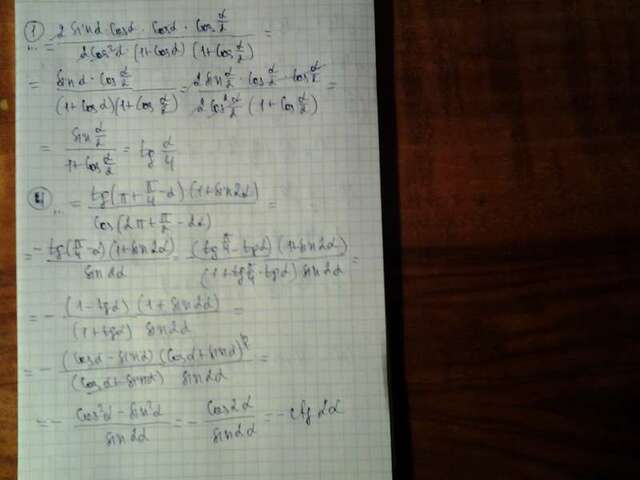 ① ... = (2 sin α · cos α · cos α · cos α/2) / (2 cos² α · (1+cos α) (1+cos α/2)) =
= (sin α · cos α/2) / ((1+cos α)(1+cos α/2)) = (2 sin α/2 · cos α/2 · cos α/2) / (2 cos² α/2 (1+cos α/2)) =
= (sin α/2) / (1+cos α/2) = tg α/4
④ ... = (tg(π + π/4 − α) (1+sin 2α)) / (cos(2π + π/2 − 2α)) =
= (−tg(π/4 − α)(1+sin 2α)) / (sin 2α) = ((tg π/4 − tg α) (1+sin 2α)) / ((1+tg π/4 · tg α) sin 2α) =
= − ((1−tg α) (1+sin 2α)) / ((1+tg α) sin 2α) =
= − ((cos α − sin α) (cos α + sin α)²) / ((cos α + sin α) sin 2α) =
= − (cos² α − sin² α) / (sin 2α) = − (cos 2α) / (sin 2α) = −ctg 2α